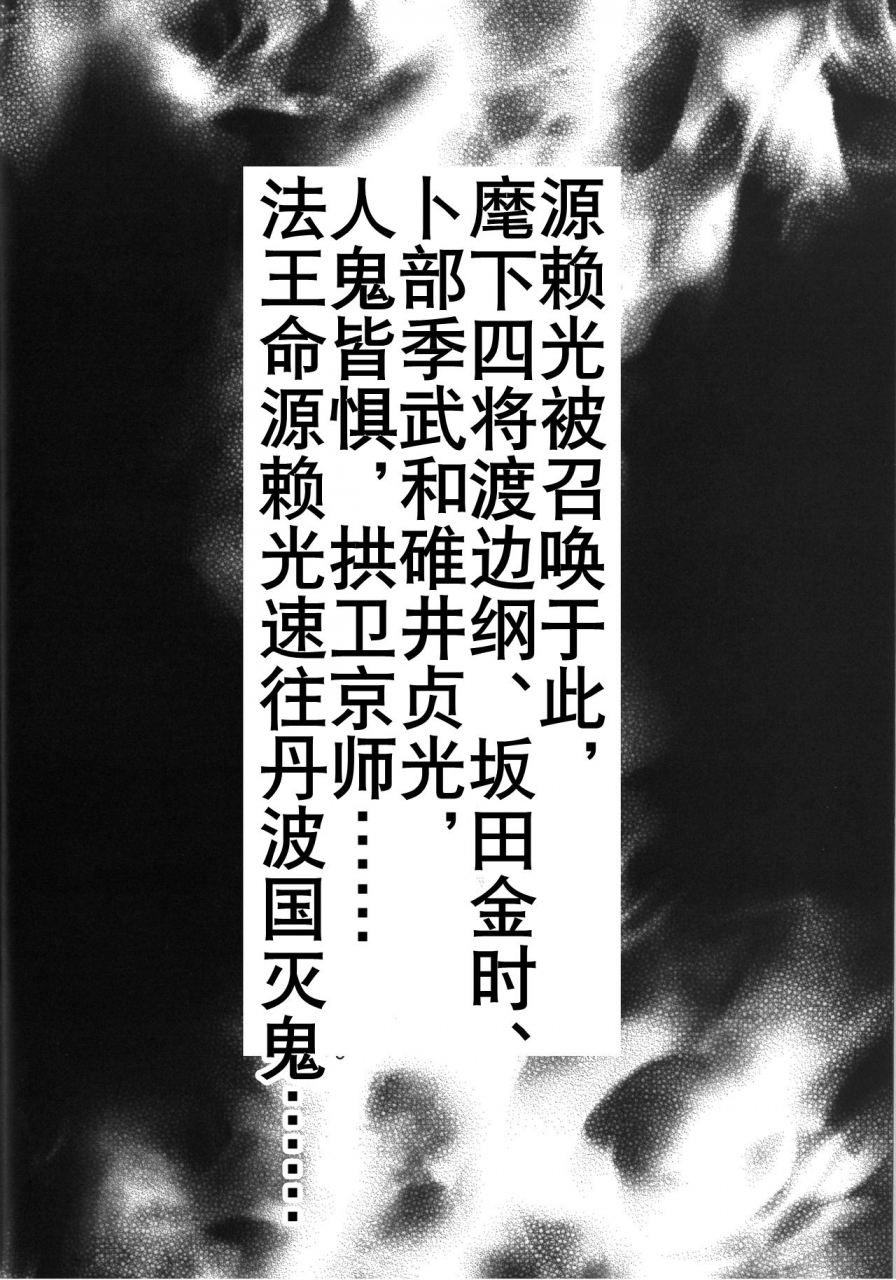 源赖光被召唤于此，
麾下四将渡边纲、坂田金时、
卜部季武和碓井贞光，
人鬼皆惧，拱卫京师……
法王命源赖光速往丹波国灭鬼……